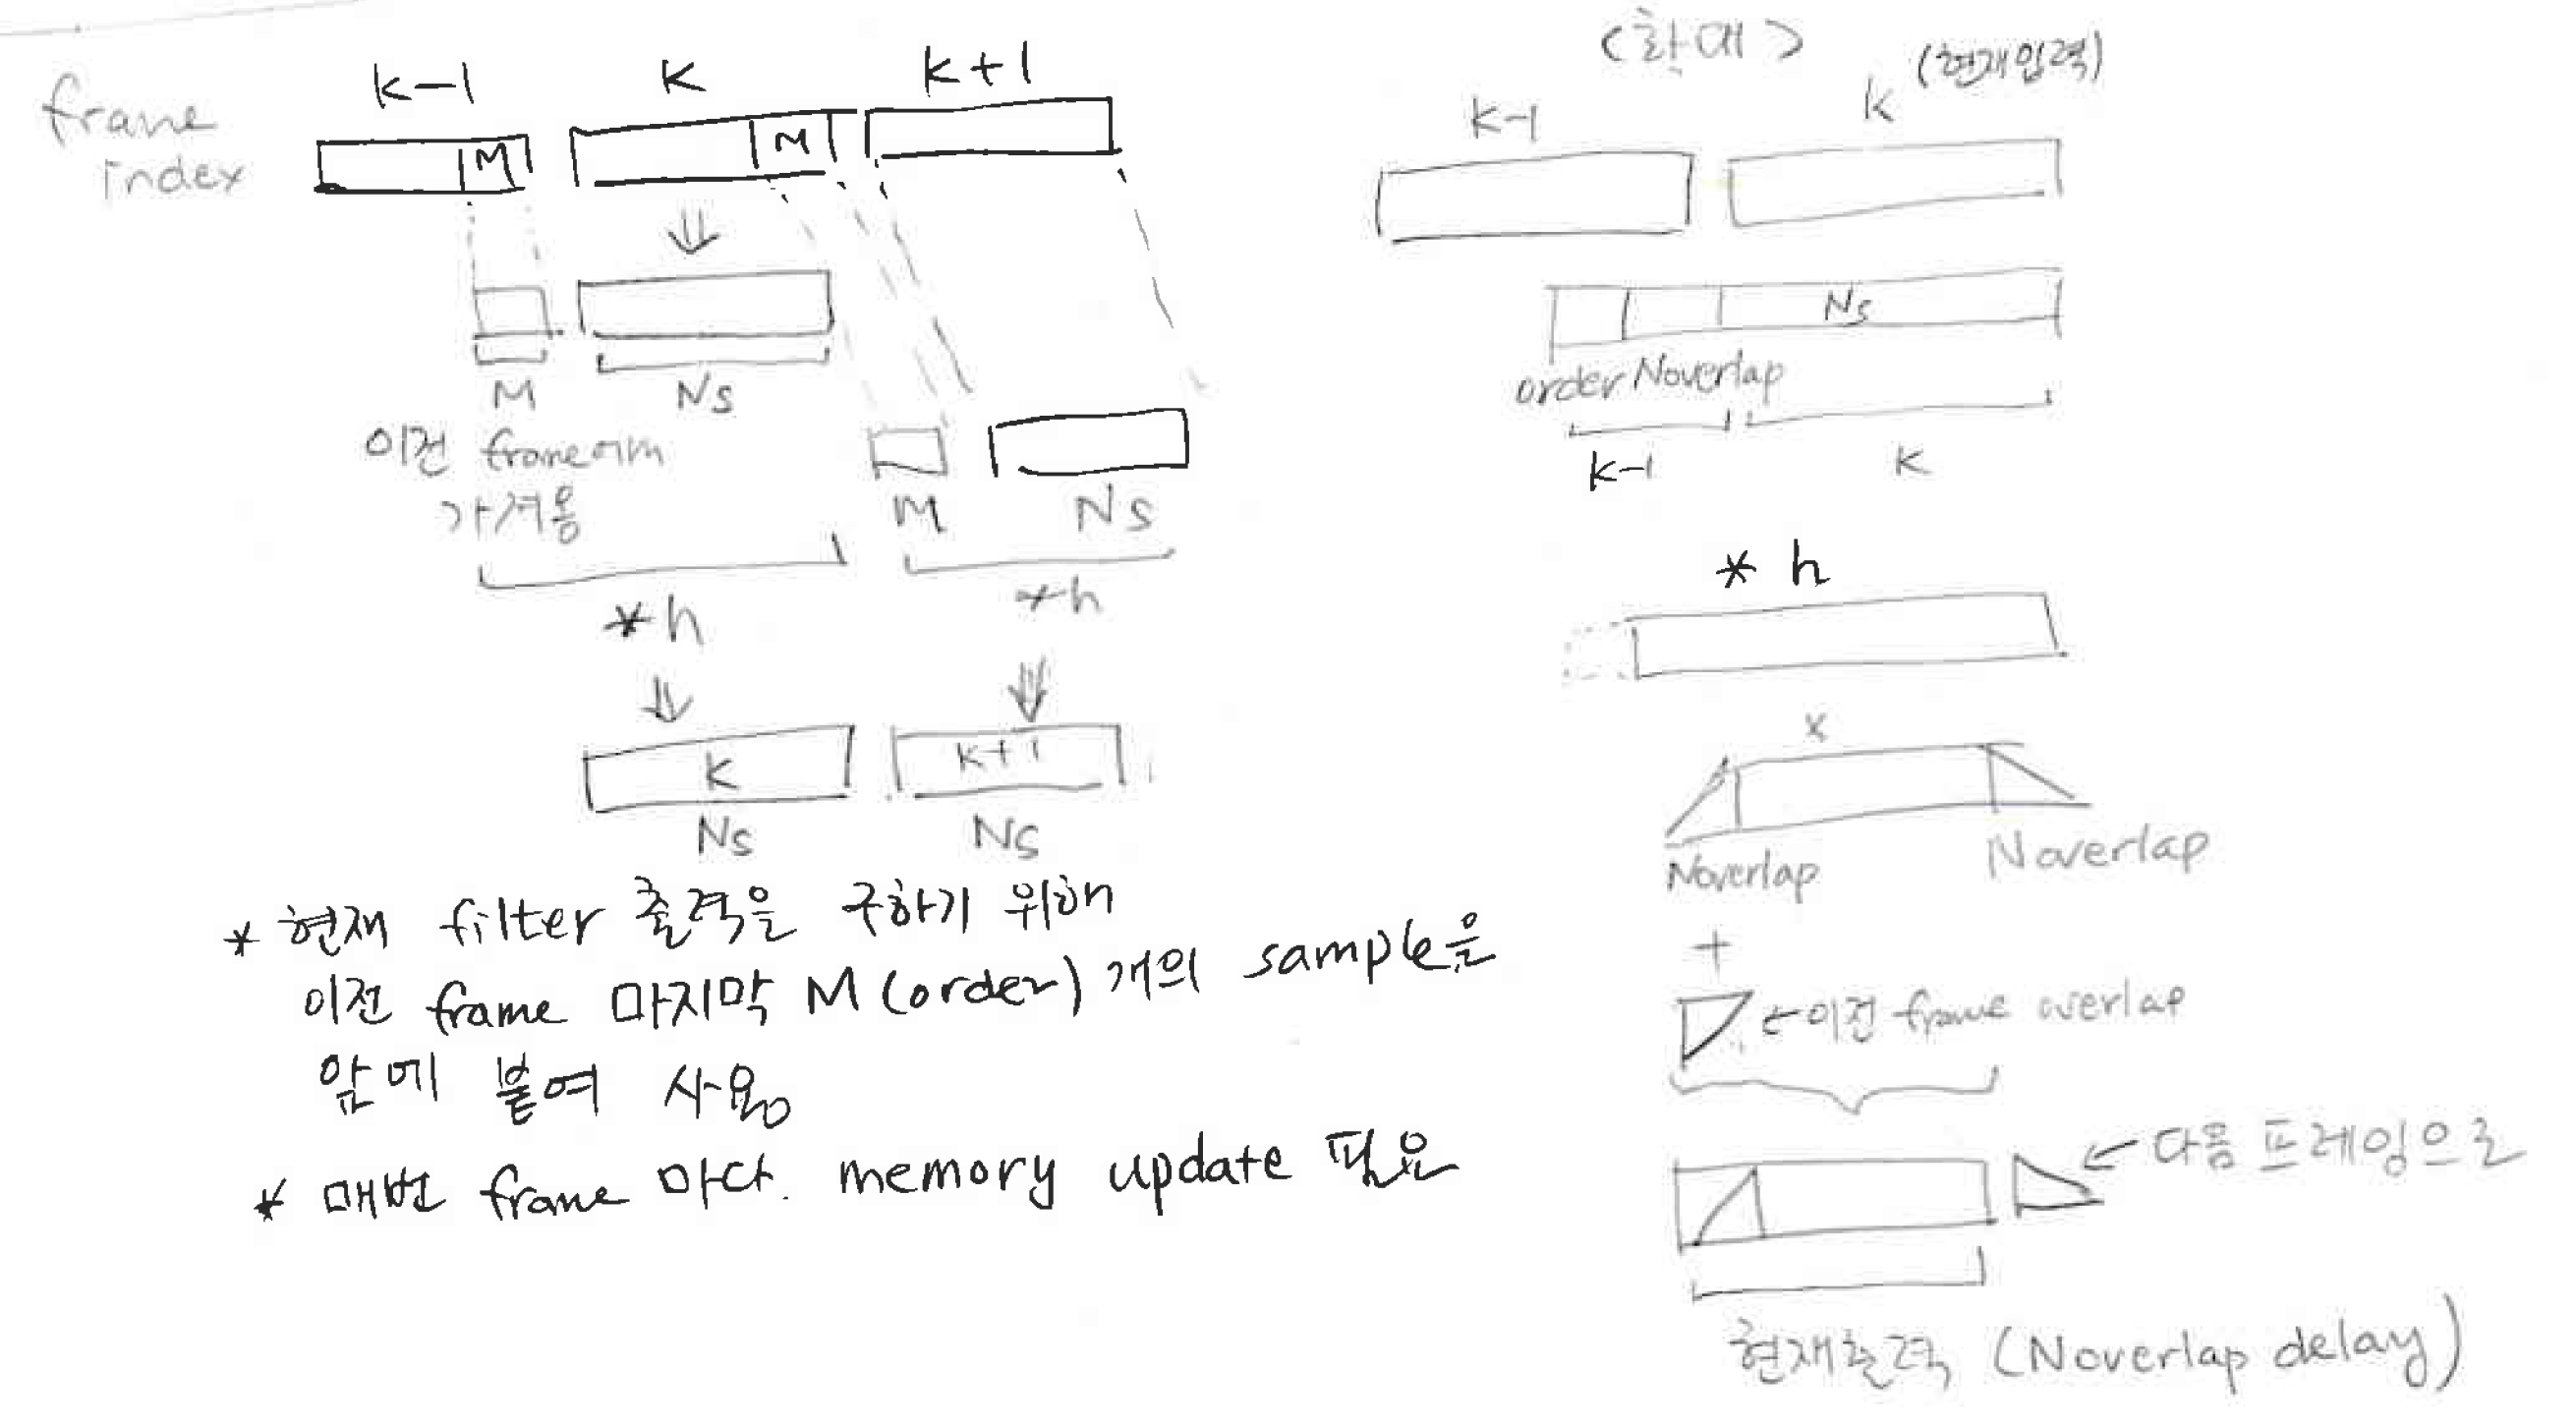 frame
index
k-1
K
k+1
M
M
M
Ns
이전 frame에서
가져옴
M
Ns
*h
*h
K
k+1
Ns
Ns
* 현재 filter 출력을 구하기 위해
이전 frame 마지막 M (order) 개의 sample을
앞에 붙여 사용
* 매번 frame 마다. memory update 필요
<확대>
k-1
k (현재입력)
Ns
order Noverlap
k-1
K
* h
x
Noverlap
Noverlap
+
←이전 frame overlap
← 다음 프레임으로
현재출력 (Noverlap delay)